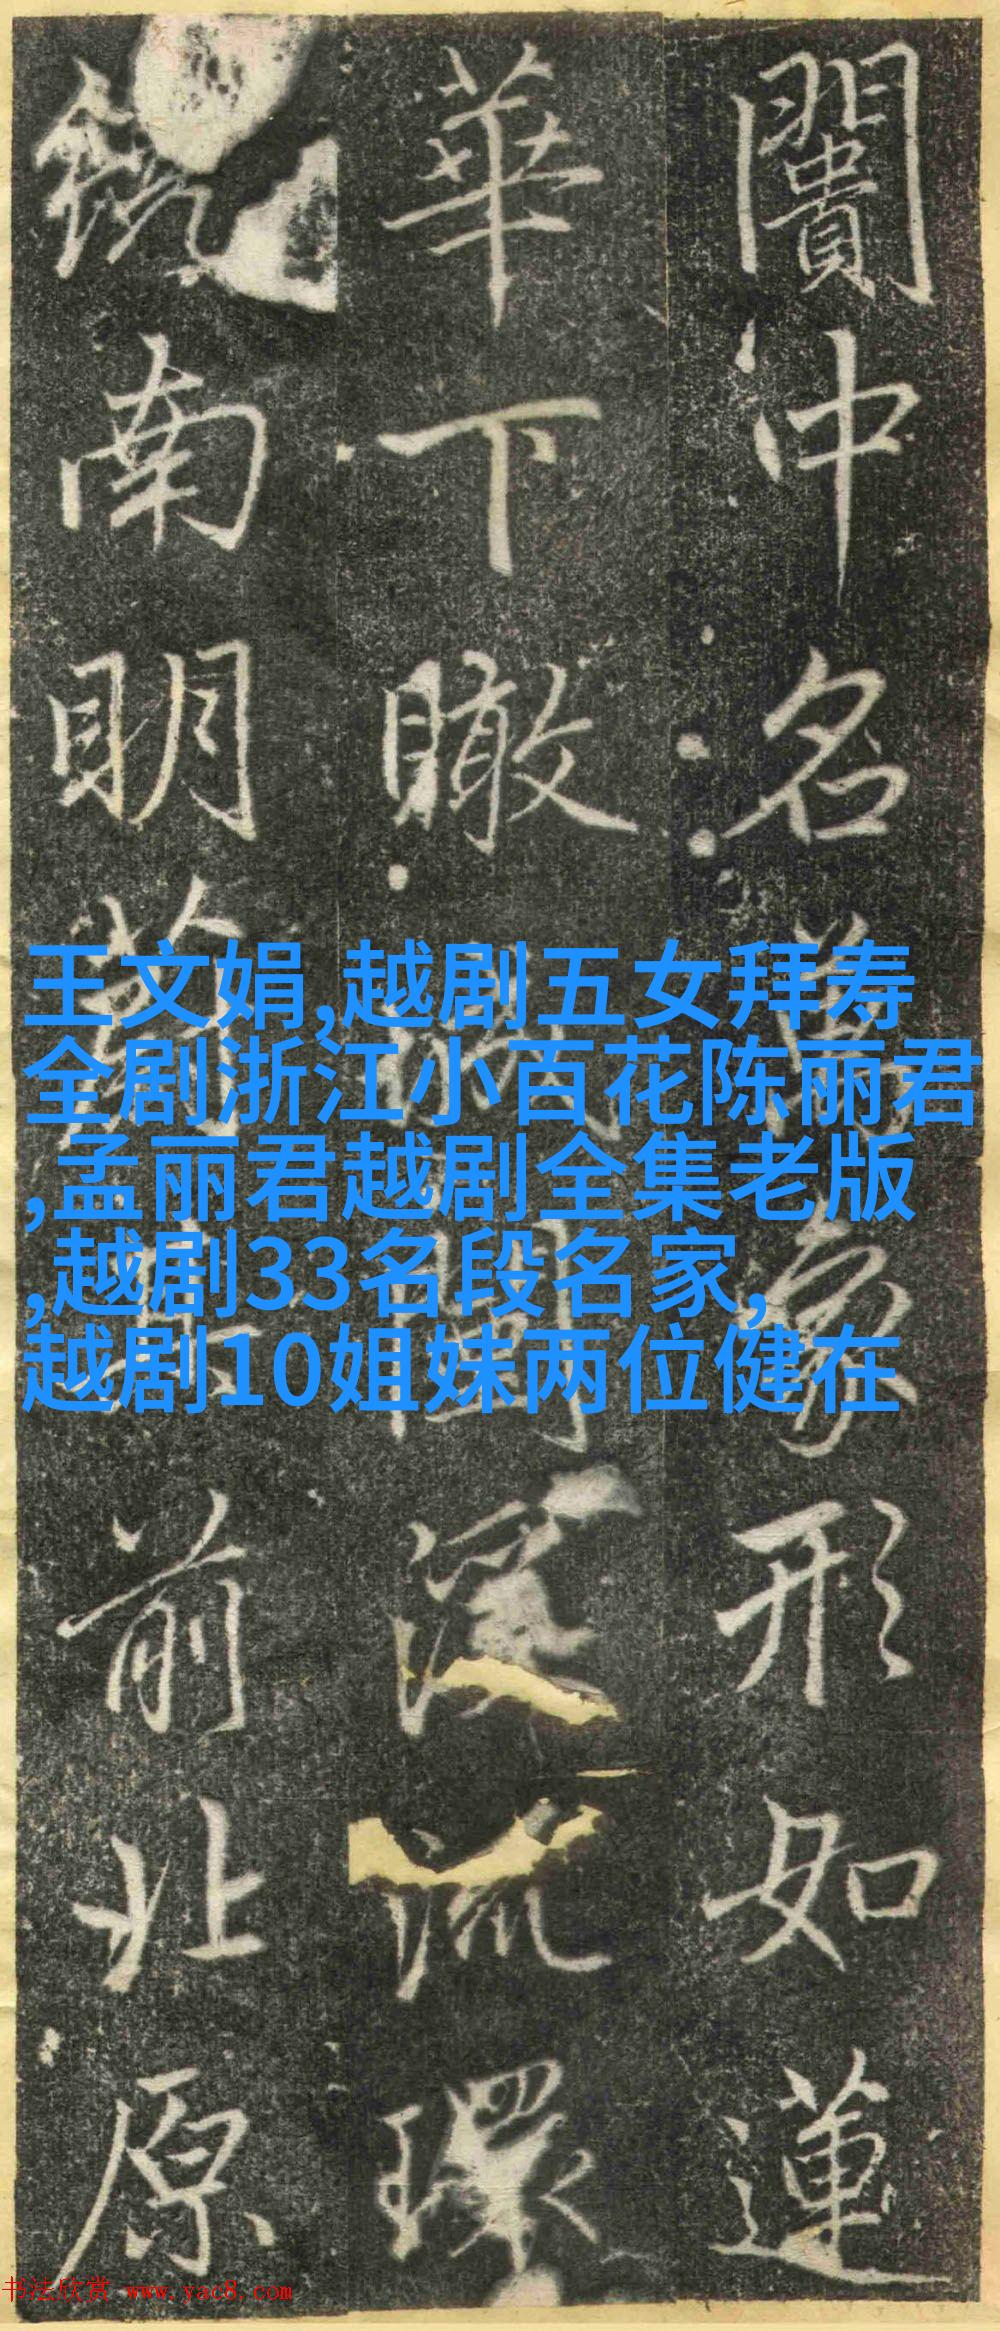 闠沖名象形如蓮
華下瞰流環
南明前北原
王文娟,越剧五女拜寿
全剧浙江小百花陈丽君
,孟丽君越剧全集老版
,越剧33名段名家,
越剧10姐妹两位健在
书法欣赏 www.yac8.com